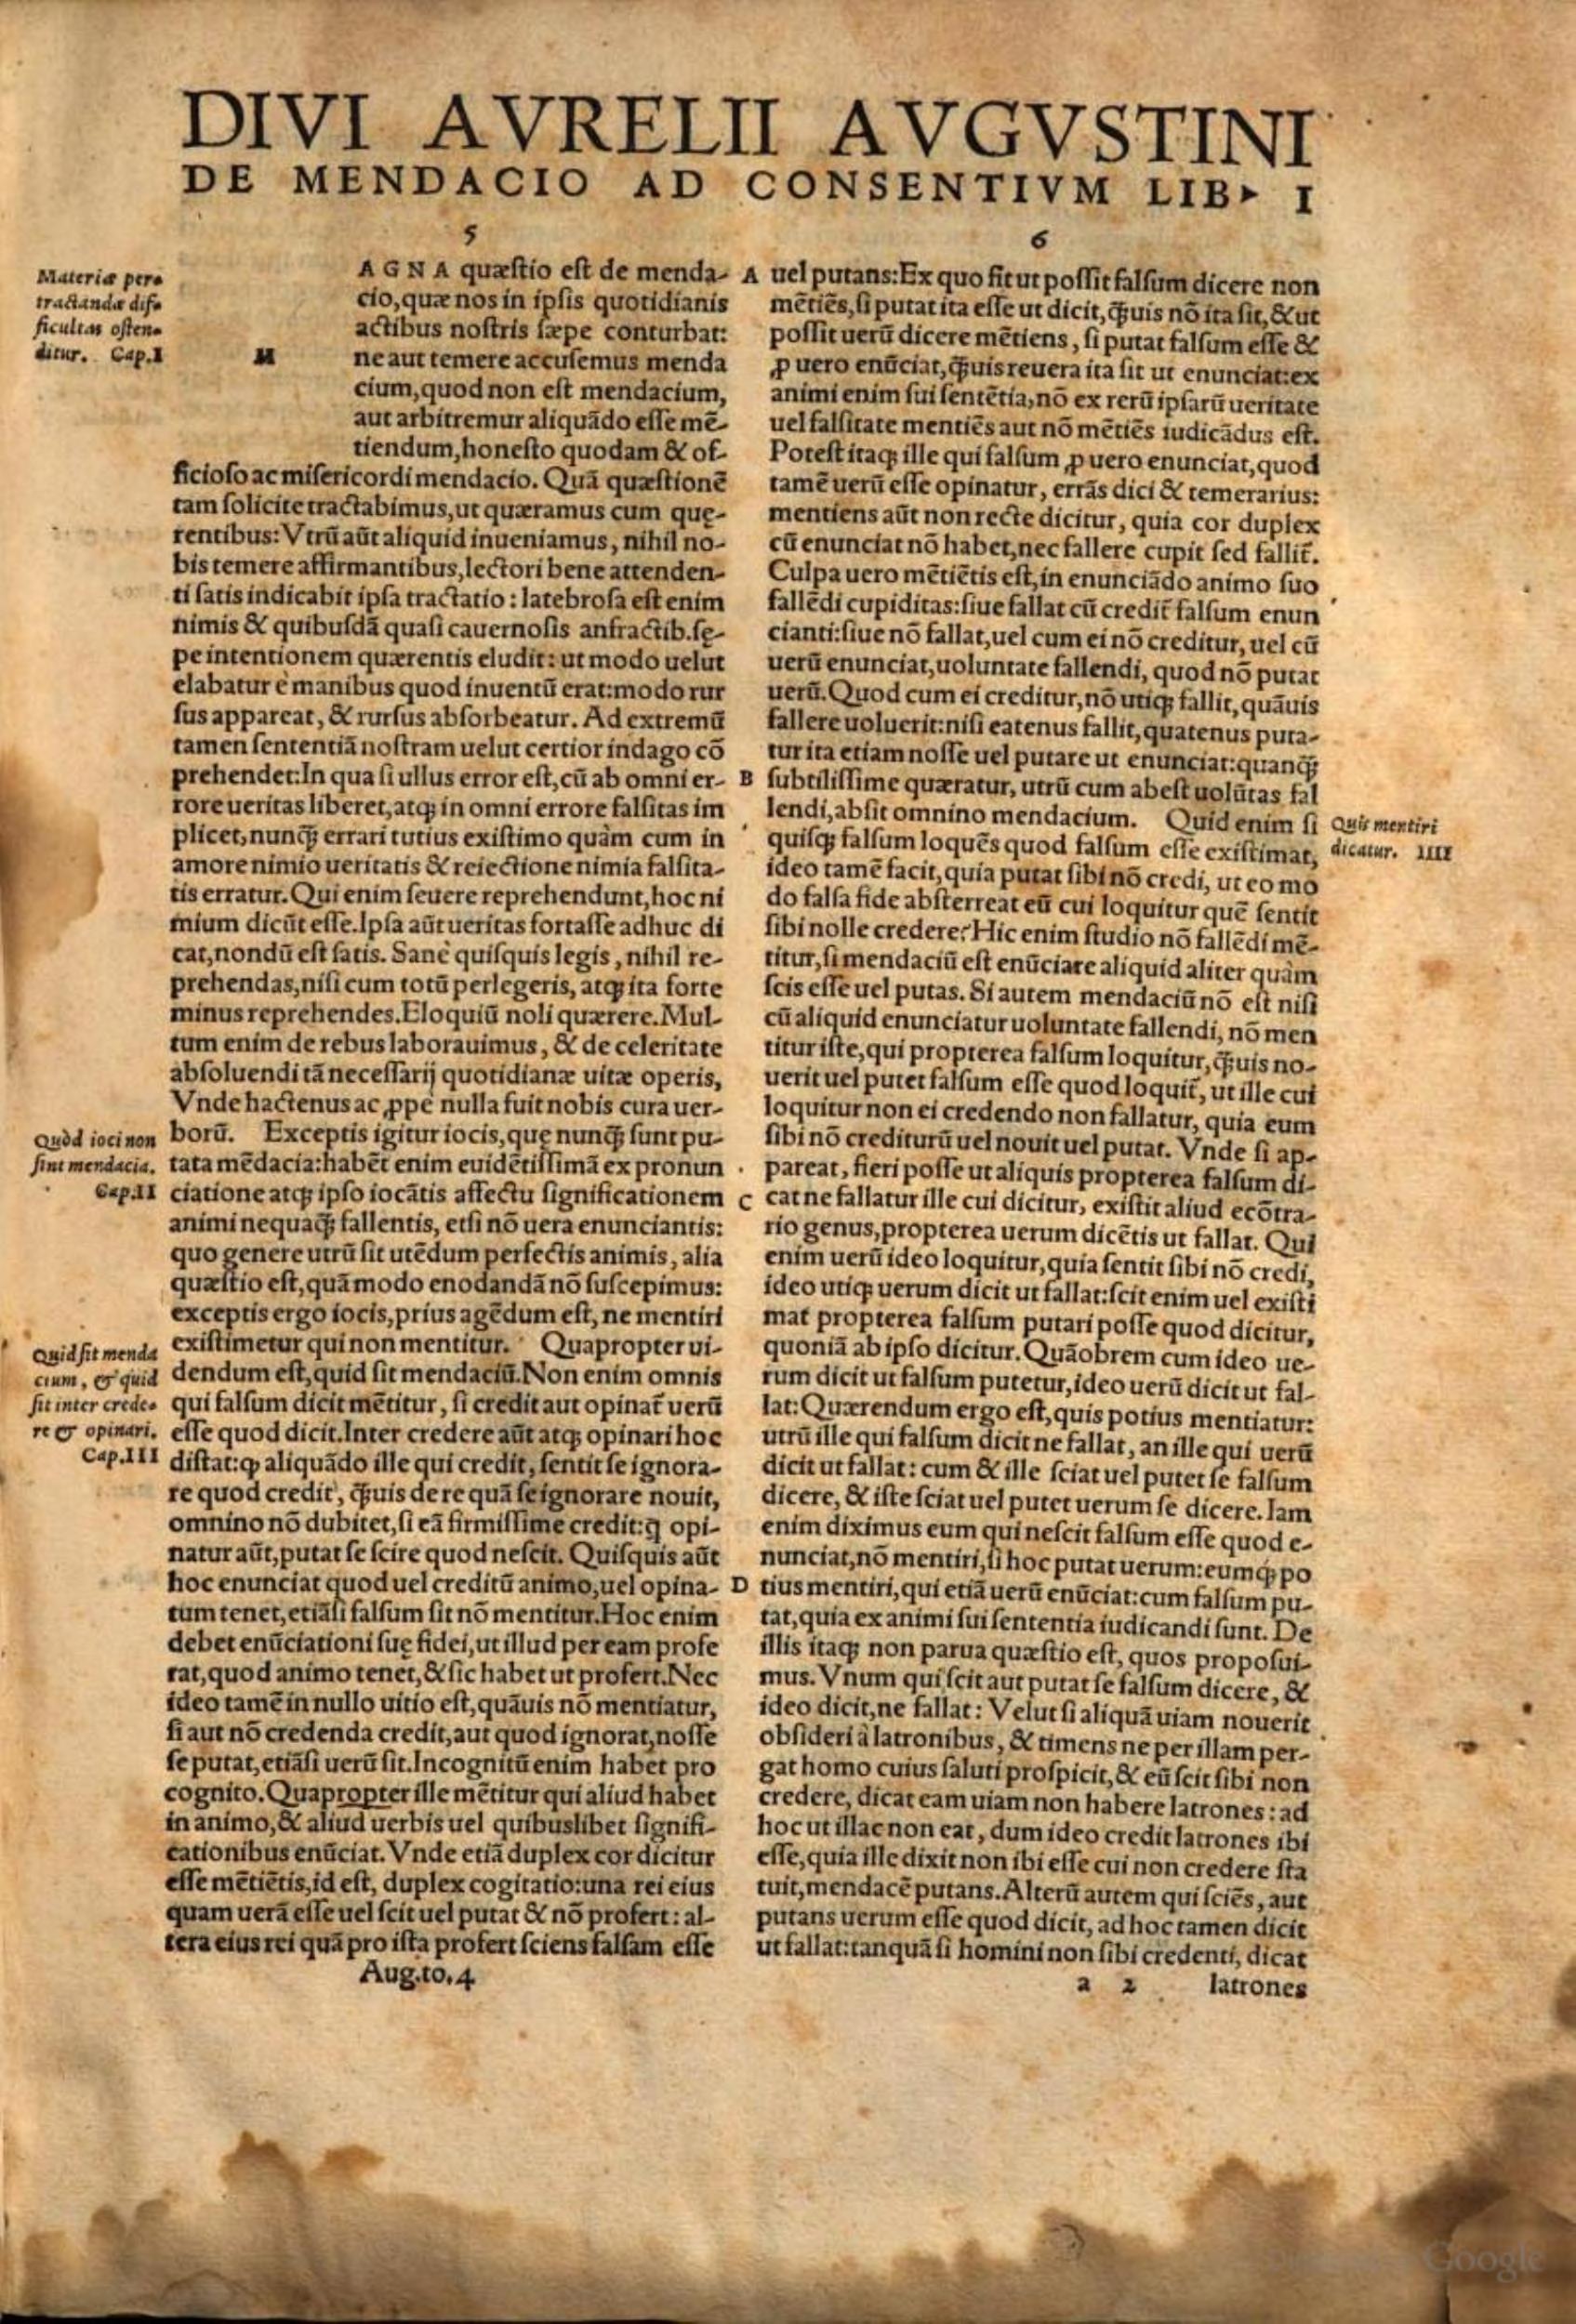 DIVI AVRELII AVGVSTINI
DE MENDACIO AD CONSENTIVM LIB▸ I
5
Materiæ per-
tractandæ dif-
ficultas osten-
ditur. Cap.I
M
AGNA quæstio est de menda-
cio, quæ nos in ipsis quotidianis
actibus nostris sæpe conturbat:
ne aut temere accusemus menda
cium, quod non est mendacium,
aut arbitremur aliquãdo esse mẽ-
tiendum, honesto quodam & of-
ficioso ac misericordi mendacio. Quã quæstionẽ
tam solicite tractabimus, ut quæramus cum quę-
rentibus: Vtrũ aũt aliquid inueniamus, nihil no-
bis temere affirmantibus, lectori bene attenden-
ti satis indicabit ipsa tractatio: latebrosa est enim
nimis & quibusdã quasi cauernosis anfractib. sę-
pe intentionem quærentis eludit: ut modo uelut
elabatur è manibus quod inuentũ erat: modo rur
sus appareat, & rursus absorbeatur. Ad extremũ
tamen sententiã nostram uelut certior indago cõ
prehendet: In qua si ullus error est, cũ ab omni er-
rore ueritas liberet, atq; in omni errore falsitas im
plicet, nunq̃; errari tutius existimo quàm cum in
amore nimio ueritatis & reiectione nimia falsita-
tis erratur. Qui enim seuere reprehendunt, hoc ni
mium dicũt esse. Ipsa aũt ueritas fortasse adhuc di
cat, nondũ est satis. Sanè quisquis legis, nihil re-
prehendas, nisi cum totũ perlegeris, atq; ita forte
minus reprehendes. Eloquiũ noli quærere. Mul-
tum enim de rebus laborauimus, & de celeritate
absoluendi tã necessarij quotidianæ uitæ operis,
Vnde hactenus ac ꝓpè nulla fuit nobis cura uer-
Quòd ioci non
sint mendacia.
Cap.II
borũ. Exceptis igitur iocis, quę nunq̃; sunt pu-
tata mẽdacia: habẽt enim euidẽtissimã ex pronun
ciatione atq; ipso iocãtis affectu significationem
animi nequaq̃; fallentis, etsi nõ uera enunciantis:
quo genere utrũ sit utẽdum perfectis animis, alia
quæstio est, quã modo enodandã nõ suscepimus:
exceptis ergo iocis, prius agẽdum est, ne mentiri
Quid sit menda
cium, & quid
sit inter crede-
re & opinari.
Cap.III
existimetur qui non mentitur. Quapropter ui-
dendum est, quid sit mendaciũ. Non enim omnis
qui falsum dicit mẽtitur, si credit aut opinat̃ uerũ
esse quod dicit. Inter credere aũt atq; opinari hoc
distat: ꝙ aliquãdo ille qui credit, sentit se ignora-
re quod credit, q̃;uis de re quã se ignorare nouit,
omnino nõ dubitet, si eã firmissime credit: q̃ opi-
natur aũt, putat se scire quod nescit. Quisquis aũt
hoc enunciat quod uel creditũ animo, uel opina-
tum tenet, etiãsi falsum sit nõ mentitur. Hoc enim
debet enũciationi suę fidei, ut illud per eam profe
rat, quod animo tenet, & sic habet ut profert. Nec
ideo tamẽ in nullo uitio est, quãuis nõ mentiatur,
si aut nõ credenda credit, aut quod ignorat, nosse
se putat, etiãsi uerũ sit. Incognitũ enim habet pro
cognito. Quapropter ille mẽtitur qui aliud habet
in animo, & aliud uerbis uel quibuslibet signifi-
cationibus enũciat. Vnde etiã duplex cor dicitur
esse mẽtiẽtis, id est, duplex cogitatio: una rei eius
quam uerã esse uel scit uel putat & nõ profert: al-
tera eius rei quã pro ista profert sciens falsam esse
Aug.to.4
6
A uel putans: Ex quo fit ut possit falsum dicere non
mẽtiẽs, si putat ita esse ut dicit, q̃;uis nõ ita sit, & ut
possit uerũ dicere mẽtiens, si putat falsum esse &
ꝓ uero enũciat, q̃;uis reuera ita sit ut enunciat: ex
animi enim sui sentẽtia, nõ ex rerũ ipsarũ ueritate
uel falsitate mentiẽs aut nõ mẽtiẽs iudicãdus est.
Potest itaq; ille qui falsum ꝓ uero enunciat, quod
tamẽ uerũ esse opinatur, errãs dici & temerarius:
mentiens aũt non recte dicitur, quia cor duplex
cũ enunciat nõ habet, nec fallere cupit sed fallit̃.
Culpa uero mẽtiẽtis est, in enunciãdo animo suo
fallẽdi cupiditas: siue fallat cũ credit̃ falsum enun
cianti: siue nõ fallat, uel cum ei nõ creditur, uel cũ
uerũ enunciat, uoluntate fallendi, quod nõ putat
uerũ. Quod cum ei creditur, nõ utiq; fallit, quãuis
fallere uoluerit: nisi eatenus fallit, quatenus puta-
tur ita etiam nosse uel putare ut enunciat: quanq̃;
B subtilissime quæratur, utrũ cum abest uolũtas fal
lendi, absit omnino mendacium. Quid enim si
Quis mentiri
dicatur. IIII
quisq; falsum loquẽs quod falsum esse existimat,
ideo tamẽ facit, quia putat sibi nõ credi, ut eo mo
do falsa fide absterreat eũ cui loquitur quẽ sentit
sibi nolle credere? Hic enim studio nõ fallẽdi mẽ-
titur, si mendaciũ est enũciare aliquid aliter quàm
scis esse uel putas. Si autem mendaciũ nõ est nisi
cũ aliquid enunciatur uoluntate fallendi, nõ men
titur iste, qui propterea falsum loquitur, q̃;uis no-
uerit uel putet falsum esse quod loquit̃, ut ille cui
loquitur non ei credendo non fallatur, quia eum
sibi nõ crediturũ uel nouit uel putat. Vnde si ap-
pareat, fieri posse ut aliquis propterea falsum di-
C cat ne fallatur ille cui dicitur, existit aliud ecõtra-
rio genus, propterea uerum dicẽtis ut fallat. Qui
enim uerũ ideo loquitur, quia sentit sibi nõ credi,
ideo utiq; uerum dicit ut fallat: scit enim uel existi
mat propterea falsum putari posse quod dicitur,
quoniã ab ipso dicitur. Quãobrem cum ideo ue-
rum dicit ut falsum putetur, ideo uerũ dicit ut fal-
lat: Quærendum ergo est, quis potius mentiatur:
utrũ ille qui falsum dicit ne fallat, an ille qui uerũ
dicit ut fallat: cum & ille sciat uel putet se falsum
dicere, & iste sciat uel putet uerum se dicere. Iam
enim diximus eum qui nescit falsum esse quod e-
nunciat, nõ mentiri, si hoc putat uerum: eumq; po
D tius mentiri, qui etiã uerũ enũciat: cum falsum pu-
tat, quia ex animi sui sententia iudicandi sunt. De
illis itaq; non parua quæstio est, quos proposui-
mus. Vnum qui scit aut putat se falsum dicere, &
ideo dicit, ne fallat: Velut si aliquã uiam nouerit
obsideri à latronibus, & timens ne per illam per-
gat homo cuius saluti prospicit, & eũ scit sibi non
credere, dicat eam uiam non habere latrones: ad
hoc ut illac non eat, dum ideo credit latrones ibi
esse, quia ille dixit non ibi esse cui non credere sta
tuit, mendacẽ putans. Alterũ autem qui sciẽs, aut
putans uerum esse quod dicit, ad hoc tamen dicit
ut fallat: tanquã si homini non sibi credenti, dicat
a 2 latrones
Google